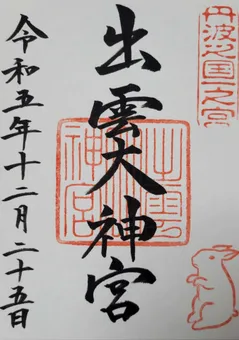 丹波之国一之宮
出雲大神宮
出雲大神宮
令和五年十二月二十五日